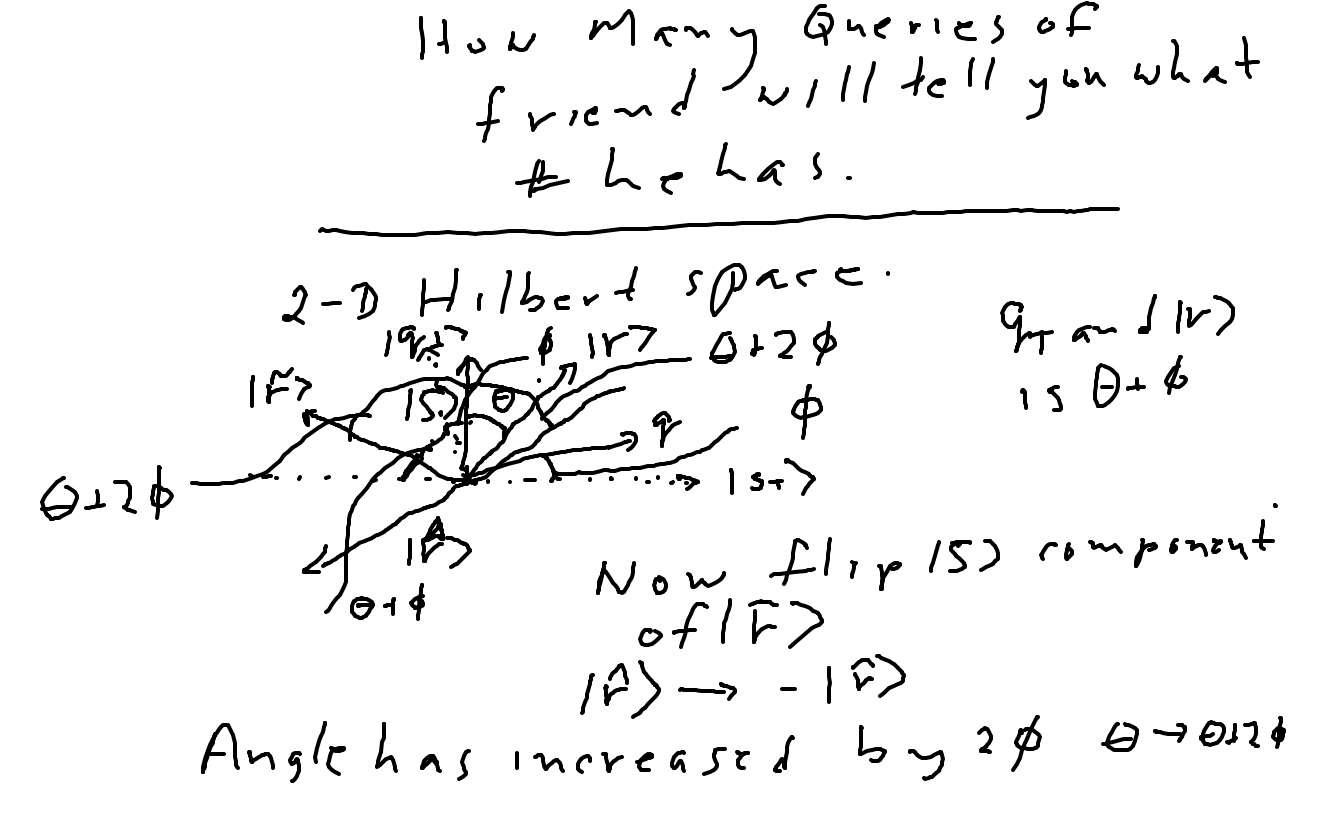 How Many Queries of
friend will tell you what
# he has.
2-D Hilbert space.
|q⊥⟩ ϕ |r⟩ θ+2ϕ
q⊤ and |r⟩
is θ+ϕ
|r̃⟩ |S⟩ θ
q ϕ
θ+2ϕ |s⊤⟩
|r̂⟩
θ+ϕ
Now flip |S⟩ component
of |r̃⟩
|r̂⟩ → -|r̂⟩
Angle has increased by 2ϕ θ→θ+2ϕ